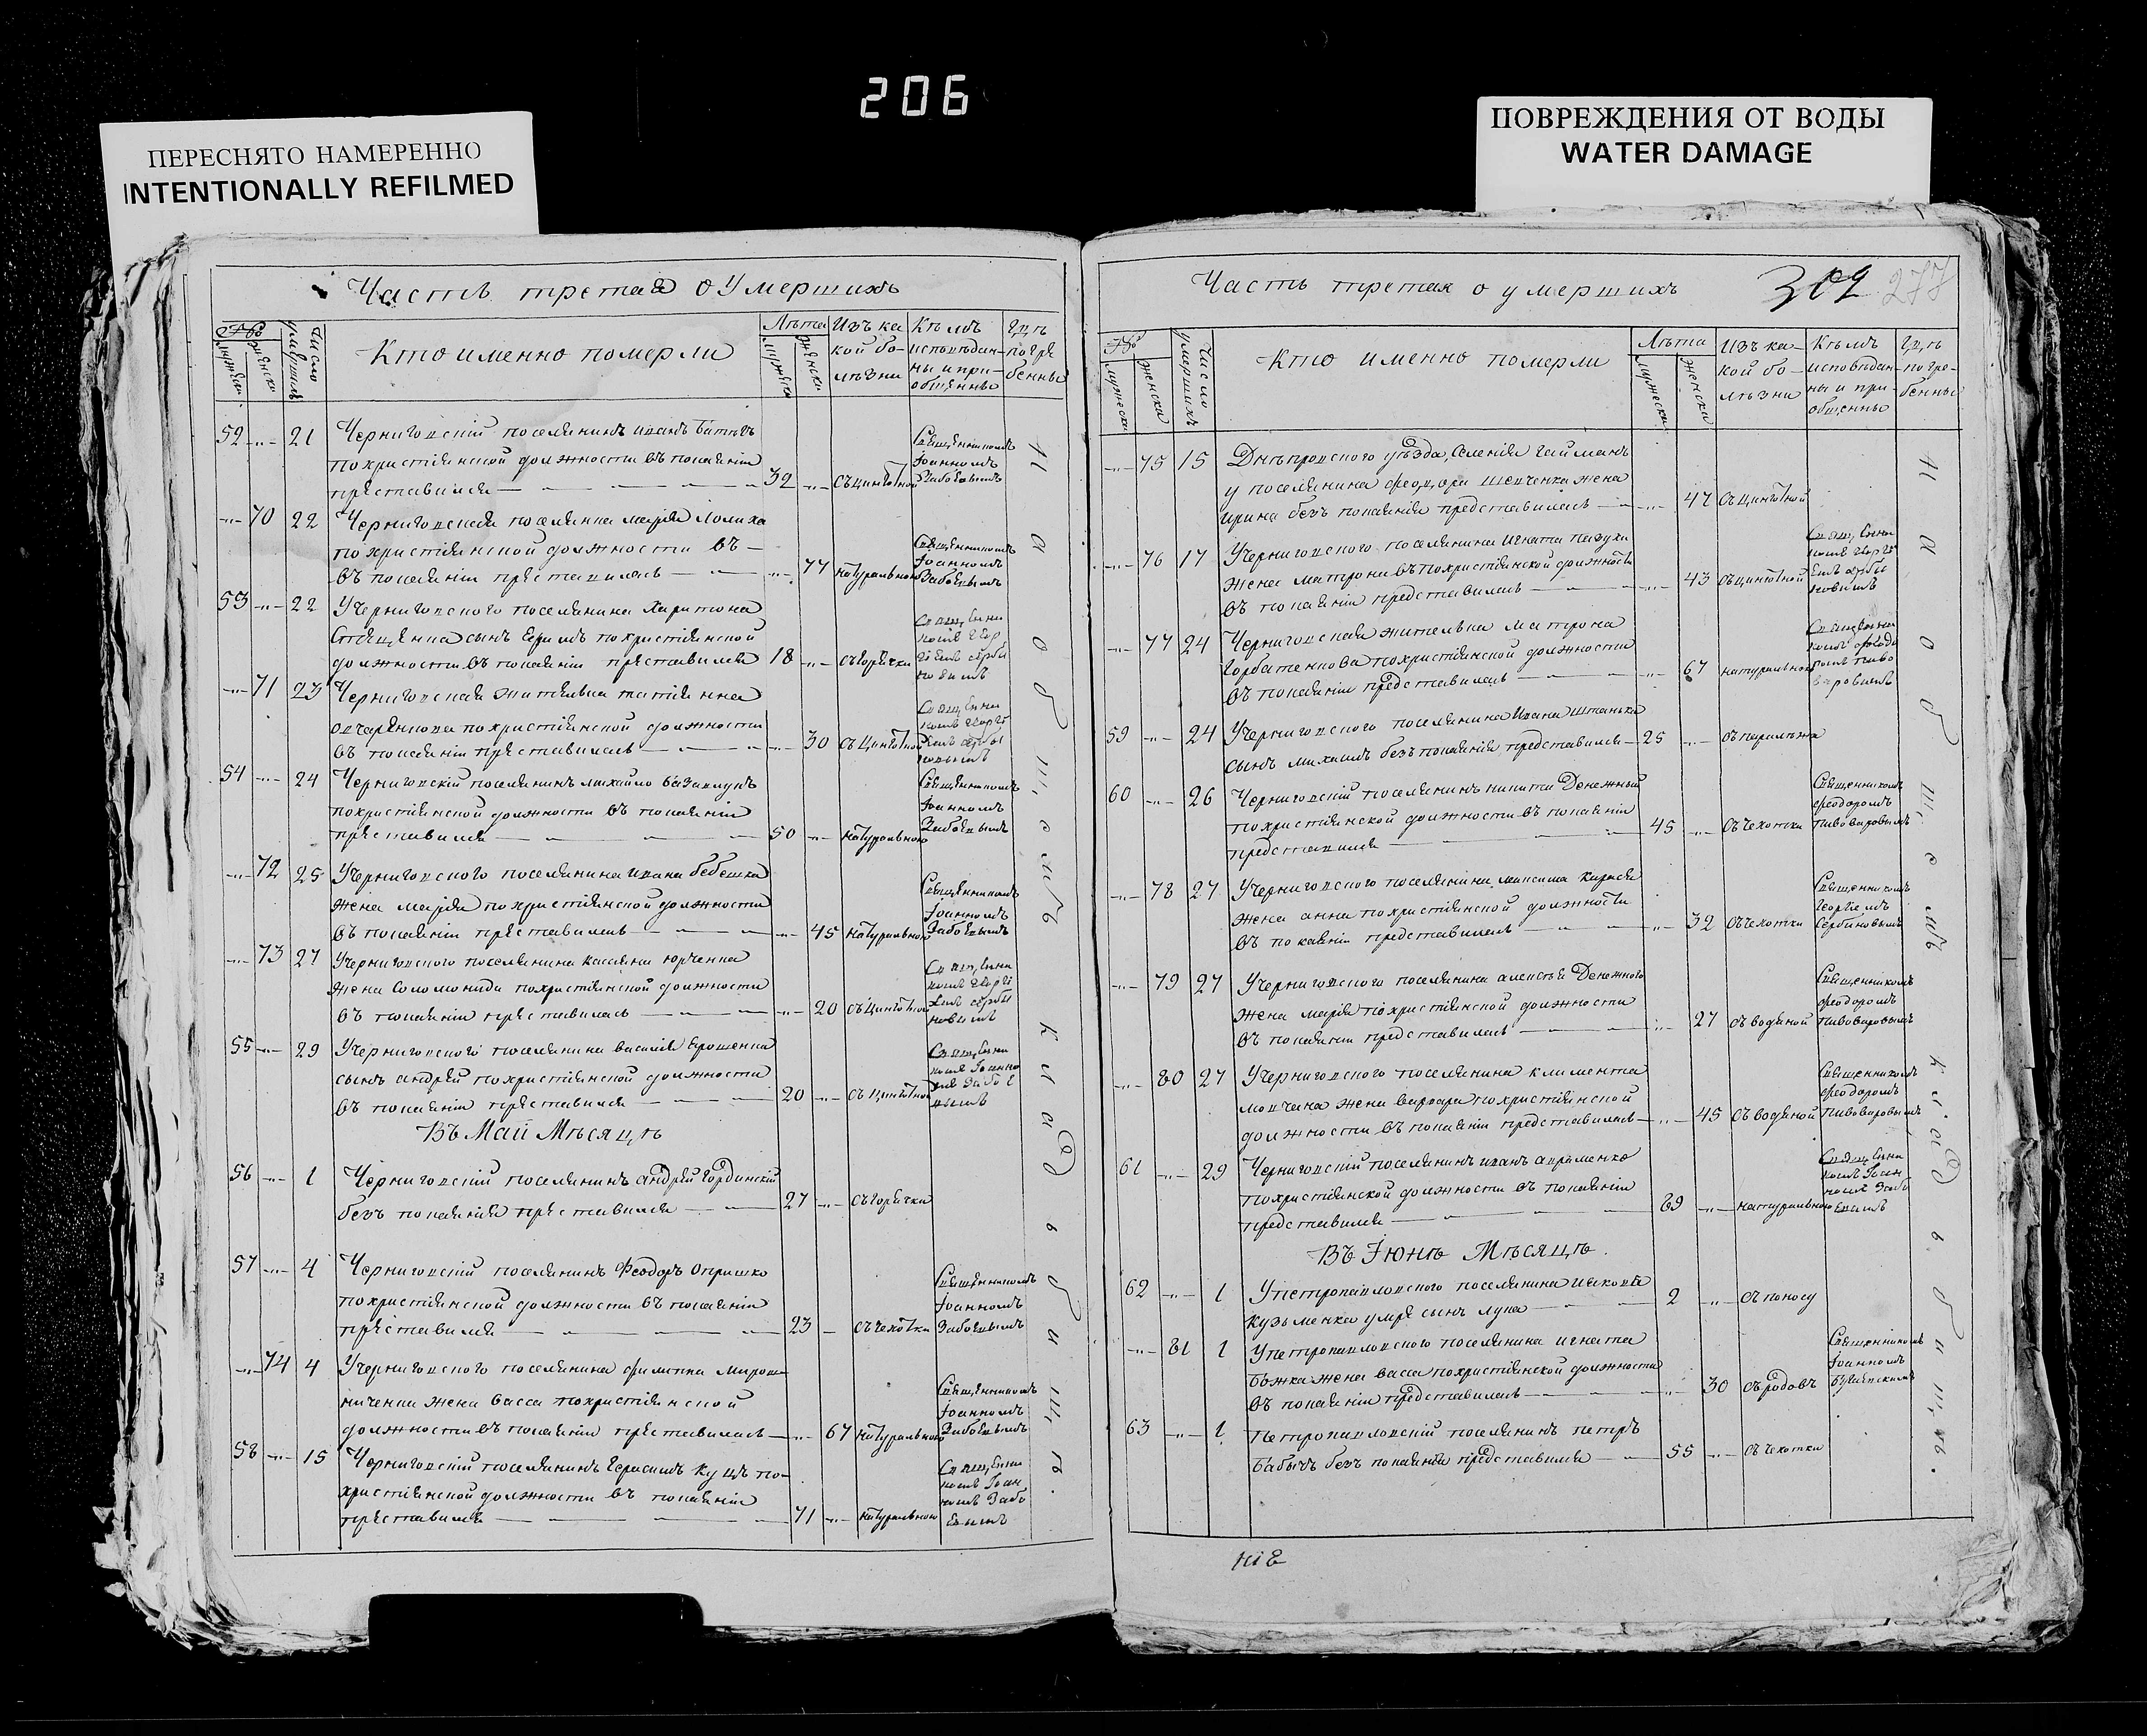 206
ПЕРЕСНЯТО НАМЕРЕННО
INTENTIONALLY REFILMED
ПОВРЕЖДЕНИЯ ОТ ВОДЫ
WATER DAMAGE
Часть третая о умершихъ
Число умершихъ
Кто именно померли
Лѣта
Изъ какой болѣзни
Кѣмъ исповѣданы и пріобщенны
Гдѣ погребенны
52 21 Черниговскій поселянинъ иванъ
похристіянской должности въ покаяніи
преставился 32 съ цинготной
Священникомъ Іоанномъ Забоевымъ
70 22 Черниговская поселянка марія
похристіянской должности въ
въ покаяніи преставилась 77 натурально
Священникомъ Іоанномъ Забоевымъ
53 22 У Черниговского поселянина харитона
сынъ похристіянской
должности въ покаяніи преставился 18 съ горячки
71 23 Черниговская жителька татіянна
овчаренкова похристіянской должности
въ покаяніи преставилась 30 съ цинготной
54 24 Черниговскій поселянинъ михайло
похристіянской должности въ покаяніи
преставился 50 натурально
Священникомъ Іоанномъ Забоевымъ
72 25 У Черниговского поселянина ивана бебешка
жена марія похристіянской должности
въ покаяніи преставилась 45 натурально
Священникомъ Іоанномъ Забоевымъ
73 27 У Черниговского поселянина касіяна юрченка
жена соломонида похристіянской должности
въ покаяніи преставилась 20 съ цинготной
55 29 У Черниговского поселянина василія ярошенка
сынъ андрей похристіянской должности
въ покаяніи преставился 20 съ цинготной
Въ Маи Мѣсяцѣ
56 1 Черниговскій поселянинъ андрей гординскій
безъ покаянія преставился 27 съ горячки
57 4 Черниговскій поселянинъ Феодоръ опришко
похристіянской должности въ покаяніи
преставился 23 съ чехотки
Священникомъ Іоанномъ Забоевымъ
74 4 У Черниговского поселянина филипа мирош
ниченка жена васса похристіянской
должности въ покаяніи преставилась 67 натурально
Священникомъ Іоанномъ Забоевымъ
58 15 Черниговскій поселянинъ герасимъ куцъ по
христіянской должности въ покаяніи
преставился 71 натурально
На общемъ кладбищѣ.
Часть третая о умершихъ
302 277
Число умершихъ
Кто именно померли
Лѣта
Изъ какой болѣзни
Кѣмъ исповѣданы и пріобщенны
Гдѣ погребенны
75 15 Днѣпровского уѣзда, Селенія гайманъ
у поселянина феодора шевченка жена
ирина безъ покаянія представилась 47 съ цинготной
76 17 У Черниговского поселянина игната
жена матрона въ похристіянской должности
въ покаяніи представилась 43 съ цинготной
77 24 Черниговская жителька матрона
горбатенкова похристіянской должности
въ покаяніи представилась 67 натурально
59 24 У Черниговского поселянина ивана штанька
сынъ михаилъ безъ покаянія представился 25 съ паралѣжа
60 26 Черниговскій поселянинъ никита Денежный
похристіянской должности въ покаяніи
представился 45 съ чехотки
Священникомъ феодоромъ пивоваровымъ
78 27 У Черниговского поселянина максима
жена анна похристіянской должности
въ покаяніи представилась 32 съ чехотки
Священникомъ Георгіемъ Сербиновымъ
79 27 У Черниговского поселянина алексѣя Денежного
жена марія похристіянской должности
въ покаяніи представилась 27 съ водяной
Священникомъ феодоромъ пивоваровымъ
80 27 У Черниговского поселянина климента
мовчана жена варвара похристіянской
должности въ покаяніи представилась 45 съ водяной
Священникомъ феодоромъ пивоваровымъ
61 29 Черниговскій поселянинъ иванъ авраменко
похристіянской должности въ покаяніи
представился 69 натурально
Въ Іюнѣ Мѣсяцѣ.
62 1 У петропавловского поселянина иякова
кузьменка умре сынъ лука 2 съ поносу
81 1 У петропавловского поселянина игната
бѣжка жена васса похристіянской должности
въ покаяніи представилась 30 съ родовъ
63 1 петропавловскій поселянинъ петръ
бабычъ безъ покаянія представился 55 съ чехотки
На общемъ кладбищѣ.